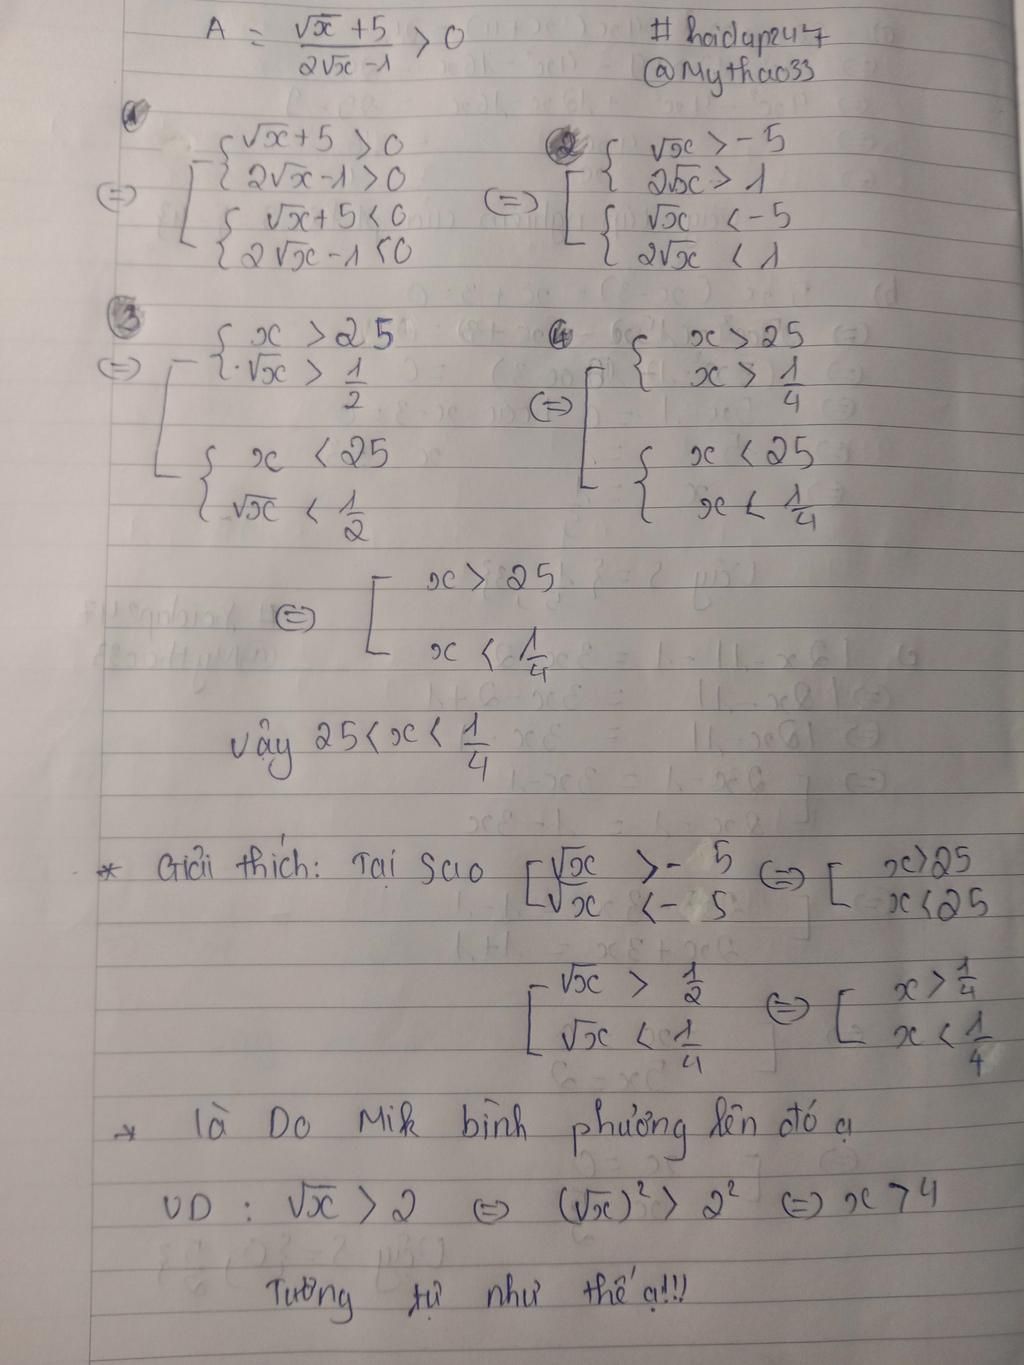 A = (√x + 5)/(2√x - 1) > 0 #hoidap247
@Mythao33
1 2
⇔ [ { √x + 5 > 0 ⇔ [ { √x > - 5
2√x - 1 > 0 2√x > 1
{ √x + 5 < 0 { √x < - 5
2√x - 1 < 0 2√x < 1
3 4
⇔ [ { x > 25 ⇔ [ { x > 25
√x > 1/2 x > 1/4
{ x < 25 { x < 25
√x < 1/2 x < 1/4
⇔ [ x > 25
x < 1/4
vậy 25 < x < 1/4
* Giải thích: Tại sao [ √x > - 5 ⇔ [ x > 25
√x < - 5 x < 25
[ √x > 1/2 ⇔ [ x > 1/4
√x < 1/4 x < 1/4
* là Do Mik bình phương lên đó ạ
VD : √x > 2 ⇔ (√x)² > 2² ⇔ x > 4
Tương tự như thế ạ!!!